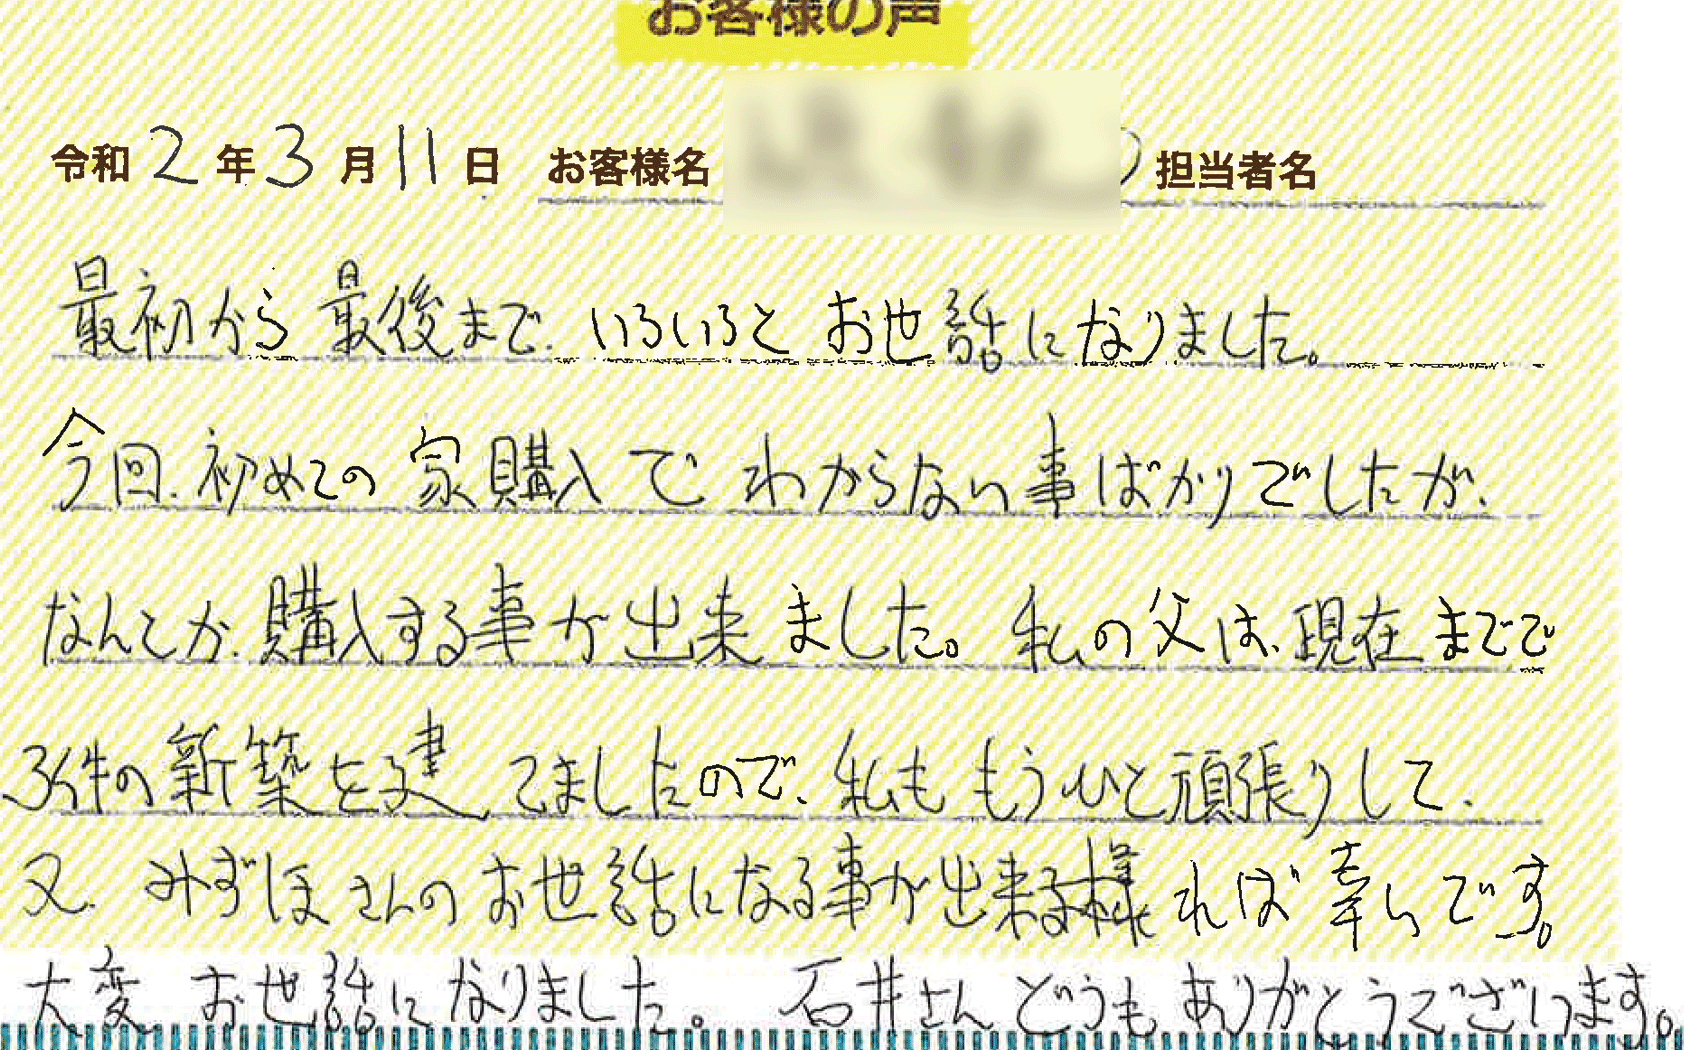 お客様の声
令和2年3月11日 お客様名 担当者名
最初から最後まで、いろいろとお世話になりました。
今回、初めての家購入でわからない事ばかりでしたが、
なんとか、購入する事が出来ました。私の父は、現在までで
3件の新築を建てましたので、私ももうひと頑張りして、
又、みずほさんのお世話になる事が出来る様れば幸いです。
大変、お世話になりました。 石井さんどうもありがとうございます。